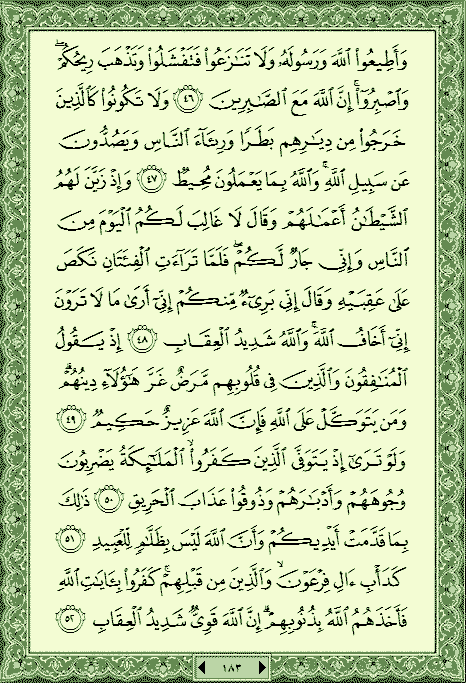 وَأَطِيعُوا۟ ٱللَّهَ وَرَسُولَهُۥ وَلَا تَنَٰزَعُوا۟ فَتَفْشَلُوا۟ وَتَذْهَبَ رِيحُكُمْ ۖ
وَٱصْبِرُوٓا۟ ۚ إِنَّ ٱللَّهَ مَعَ ٱلصَّٰبِرِينَ ٤٦ وَلَا تَكُونُوا۟ كَٱلَّذِينَ
خَرَجُوا۟ مِن دِيَٰرِهِم بَطَرًا وَرِئَآءَ ٱلنَّاسِ وَيَصُدُّونَ
عَن سَبِيلِ ٱللَّهِ ۚ وَٱللَّهُ بِمَا يَعْمَلُونَ مُحِيطٌ ٤٧ وَإِذْ زَيَّنَ لَهُمُ
ٱلشَّيْطَٰنُ أَعْمَٰلَهُمْ وَقَالَ لَا غَالِبَ لَكُمُ ٱلْيَوْمَ مِنَ
ٱلنَّاسِ وَإِنِّى جَارٌ لَّكُمْ ۖ فَلَمَّا تَرَآءَتِ ٱلْفِئَتَانِ نَكَصَ
عَلَىٰ عَقِبَيْهِ وَقَالَ إِنِّى بَرِىٓءٌ مِّنكُمْ إِنِّىٓ أَرَىٰ مَا لَا تَرَوْنَ
إِنِّىٓ أَخَافُ ٱللَّهَ ۚ وَٱللَّهُ شَدِيدُ ٱلْعِقَابِ ٤٨ إِذْ يَقُولُ
ٱلْمُنَٰفِقُونَ وَٱلَّذِينَ فِى قُلُوبِهِم مَّرَضٌ غَرَّ هَٰٓؤُلَآءِ دِينُهُمْ ۗ
وَمَن يَتَوَكَّلْ عَلَى ٱللَّهِ فَإِنَّ ٱللَّهَ عَزِيزٌ حَكِيمٌ ٤٩
وَلَوْ تَرَىٰٓ إِذْ يَتَوَفَّى ٱلَّذِينَ كَفَرُوا۟ ۙ ٱلْمَلَٰٓئِكَةُ يَضْرِبُونَ
وُجُوهَهُمْ وَأَدْبَٰرَهُمْ وَذُوقُوا۟ عَذَابَ ٱلْحَرِيقِ ٥٠ ذَٰلِكَ
بِمَا قَدَّمَتْ أَيْدِيكُمْ وَأَنَّ ٱللَّهَ لَيْسَ بِظَلَّٰمٍ لِّلْعَبِيدِ ٥١
كَدَأْبِ ءَالِ فِرْعَوْنَ ۙ وَٱلَّذِينَ مِن قَبْلِهِمْ ۚ كَفَرُوا۟ بِـَٔايَٰتِ ٱللَّهِ
فَأَخَذَهُمُ ٱللَّهُ بِذُنُوبِهِمْ ۗ إِنَّ ٱللَّهَ قَوِىٌّ شَدِيدُ ٱلْعِقَابِ ٥٢
١٨٣